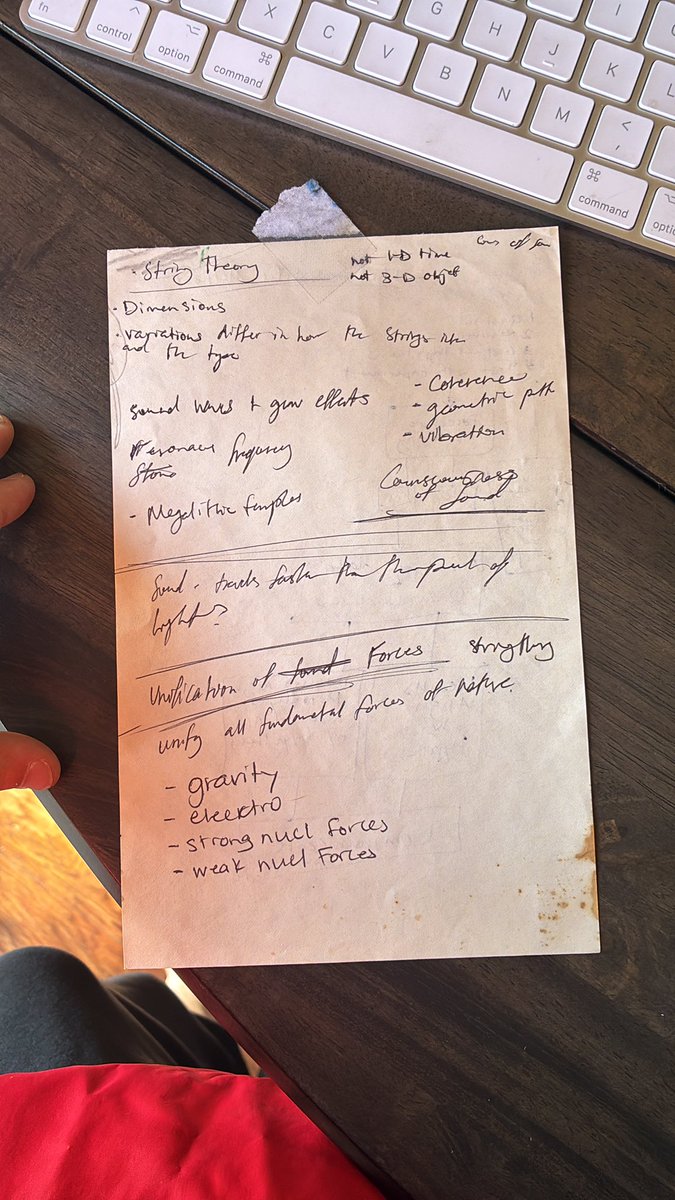 fn
control
option
command
X
C
V
B
N
M
G
H
J
K
L
I
<
,
command
option
· String Theory
not 1-D time
not 3-D object
· Dimensions
· variations differ in how the strings
and the type
sound waves + effects
- Coherence
- geometric path
- vibration
Resonance frequency
Stone
- Megalithic temples
Consciousness
of Sound
Sound - travels faster than the speed of
light?
Unification of Forces
unify all fundametal forces of nature.
- gravity
- elecktro
- strong nucl forces
- weak nucl Forces